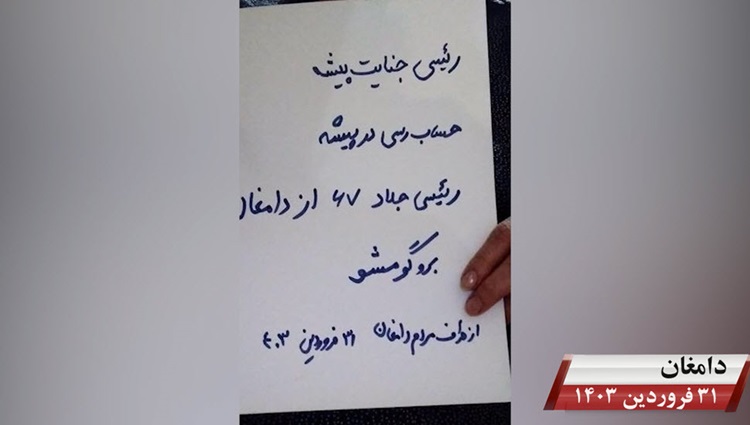 رئیسی جنایت پیشه
حساب رسی در پیشه
رئیسی جلاد ۶۷ از دامغان
برو گومشو
از طرف مردم دامغان ۳۱ فروردین ۴۰۳
دامغان
۳۱ فروردین ۱۴۰۳